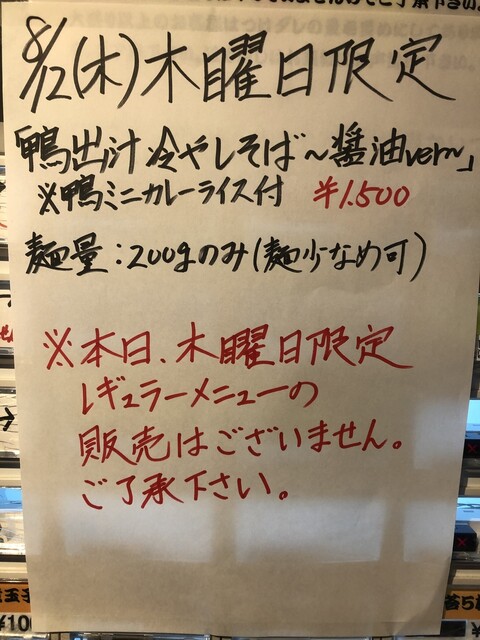 8/12(木)木曜日限定
「鴨出汁冷やしそば～醤油ver～」
※鴨ミニカレーライス付 ¥1.500
麺量:200gのみ(麺少なめ可)
※本日、木曜日限定
レギュラーメニューの
販売はございません。
ご了承下さい。
玉子
¥100